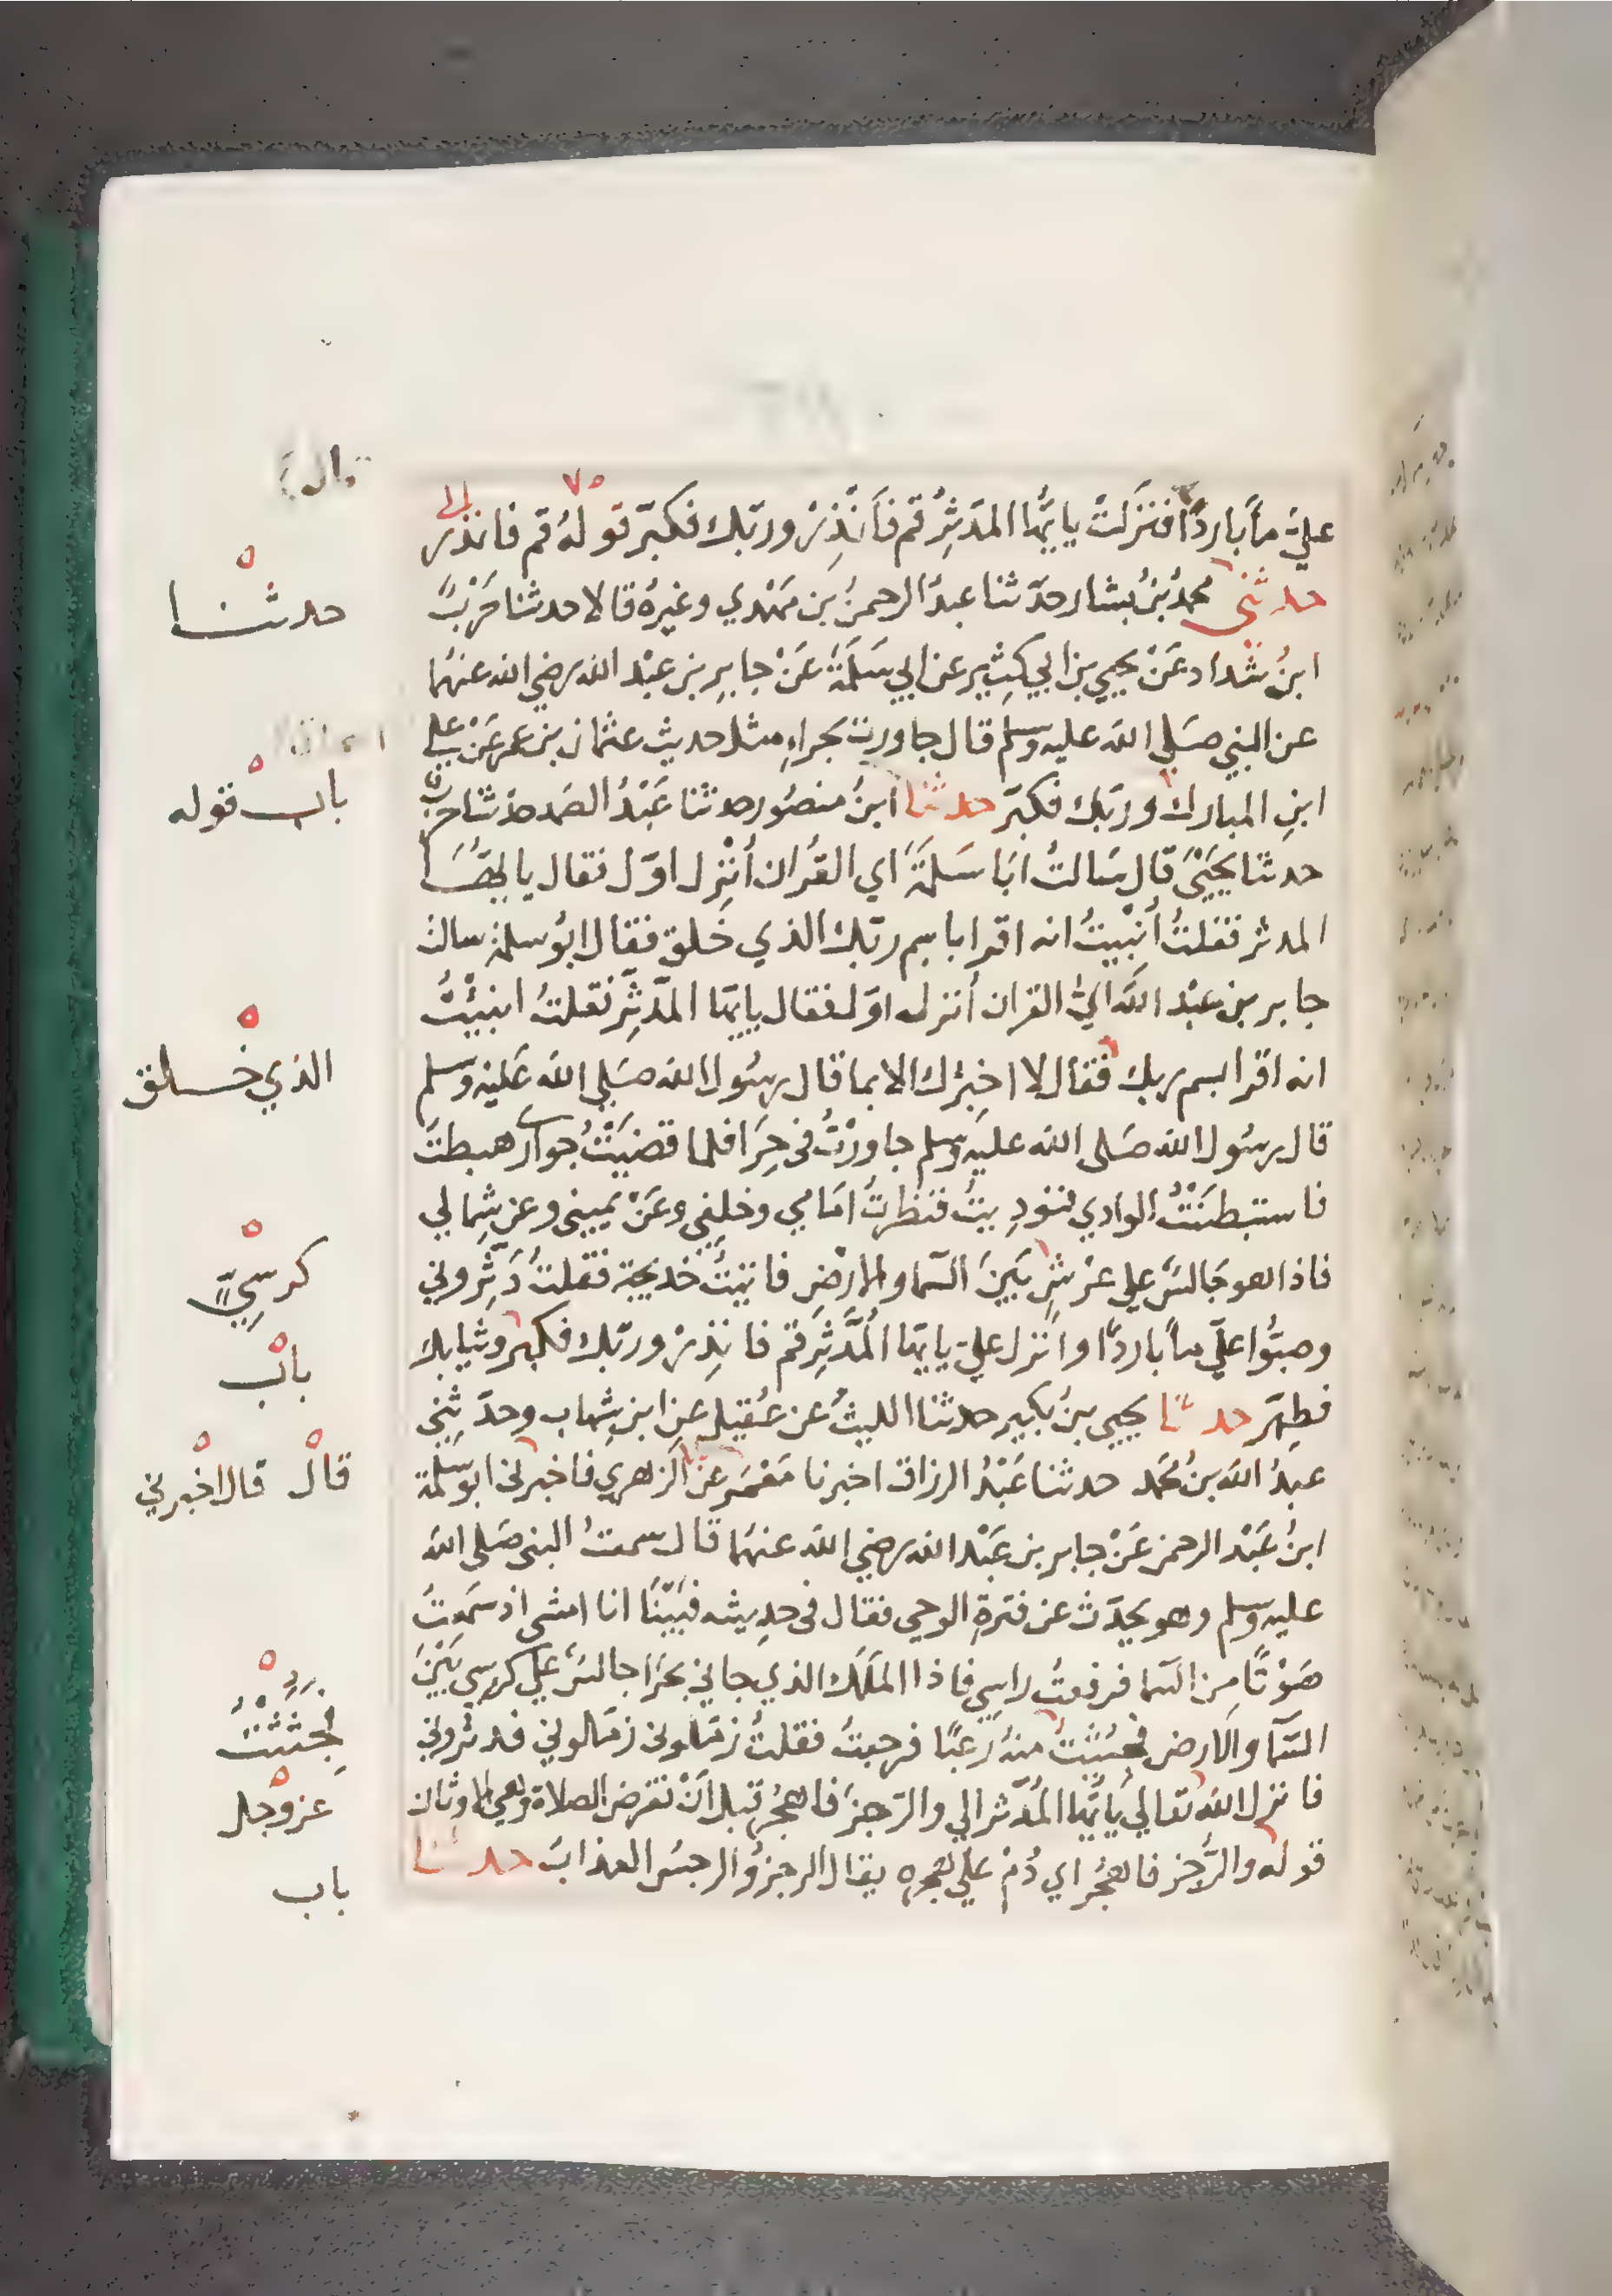 عليّ مآ باردًا فنزلت يايها المدثر قم فأنذر وربك فكبر قوله قم فانذر
حدثني محمد بن بشار حدثنا عبد الرحمن بن مهدي وغيره قالا حدثنا حرب
ابن شداد عن يحيي بن ابي كثير عن ابي سلمة عن جابر بن عبد الله رضي الله عنهما
عن النبي صلي الله عليه وسلم قال جاورت بحراء مثل حديث عثمان بن عمر عن علي
ابن المبارك وربك فكبر حدثنا ابن منصور حدثنا عبد الصمد حدثنا حرب
حدثنا يحيي قال سالت ابا سلمة اي القران أنزل اول فقال يا ايها
المدثر فقلت أنبيت انه اقرا باسم ربك الذي خلق فقال ابو سلمة سالت
جابر بن عبد الله اي القران أنزل اول فقال يايها المدثر فقلت انبيت
انه اقرا بسم ربك فقال لا اخبرك الا بما قال رسول الله صلي الله عليه وسلم
قال رسول الله صلى الله عليه وسلم جاورت في حرا فلما قضيت جواري هبطت
فاستبطنت الوادي فنوديت فنظرت امامي وخلفي وعن يميني وعن شمالي
فاذا هو جالس علي عرش بين السما والارض فاتيت خديجة فقلت دثروني
وصبوا علي مآ باردًا وانزل علي يايها المدثر قم فانذر وربك فكبر وثيابك
فطهر حدثنا يحيي بن بكير حدثنا الليث عن عقيل عن ابن شهاب وحدثني
عبد الله بن محمد حدثنا عبد الرزاق اخبرنا معمر عن الزهري فاخبرني ابو سلمة
ابن عبد الرحمن عن جابر بن عبد الله رضي الله عنهما قال سمعت النبي صلى الله
عليه وسلم وهو يحدث عن فترة الوحي فقال في حديثه فبينا انا امشي اذ سمعت
صوتًا من السما فرفعت راسي فاذا الملك الذي جاني بحرا جالس علي كرسي بين
السمآ والارض فجئثت منه رعبًا فرجعت فقلت زملوني زملوني فدثروني
فانزل الله تعالي يايها المدثر الي والرجز فاهجر قبل أن تفرض الصلاة وهي الاوثان
قوله والرجز فاهجر اي دم علي هجره يقال الرجز والرجس العذاب حدثنا
حدثنا
باب قوله
الذي خلق
كرسي
باب
قال قال اخبرني
فجثثت
عز وجل
باب